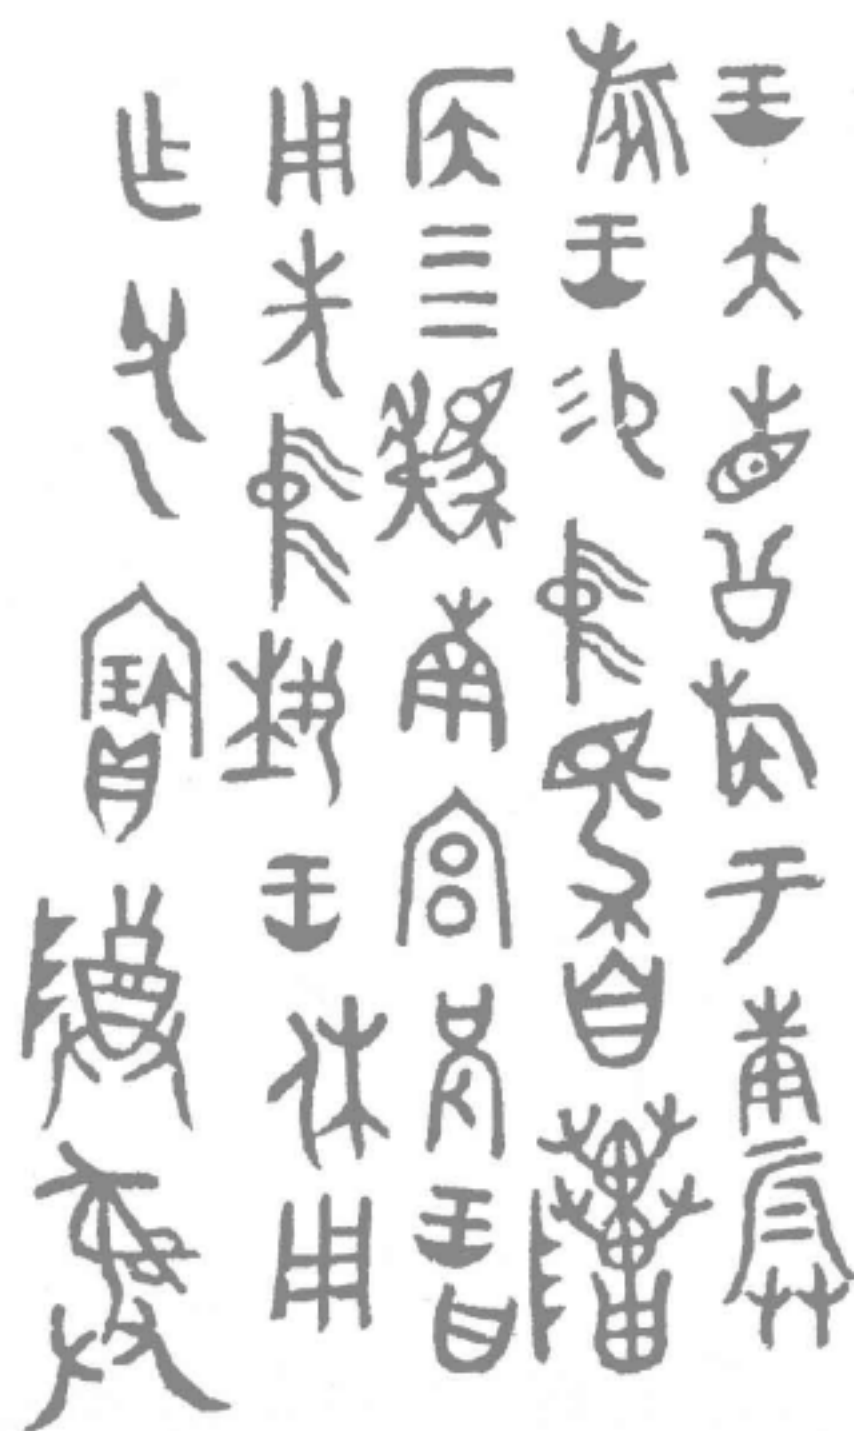 王大省公族于庚振
旅王易中馬自
侯四南宮兄王曰
用先中埶王休用
乍父乙寶尊彝